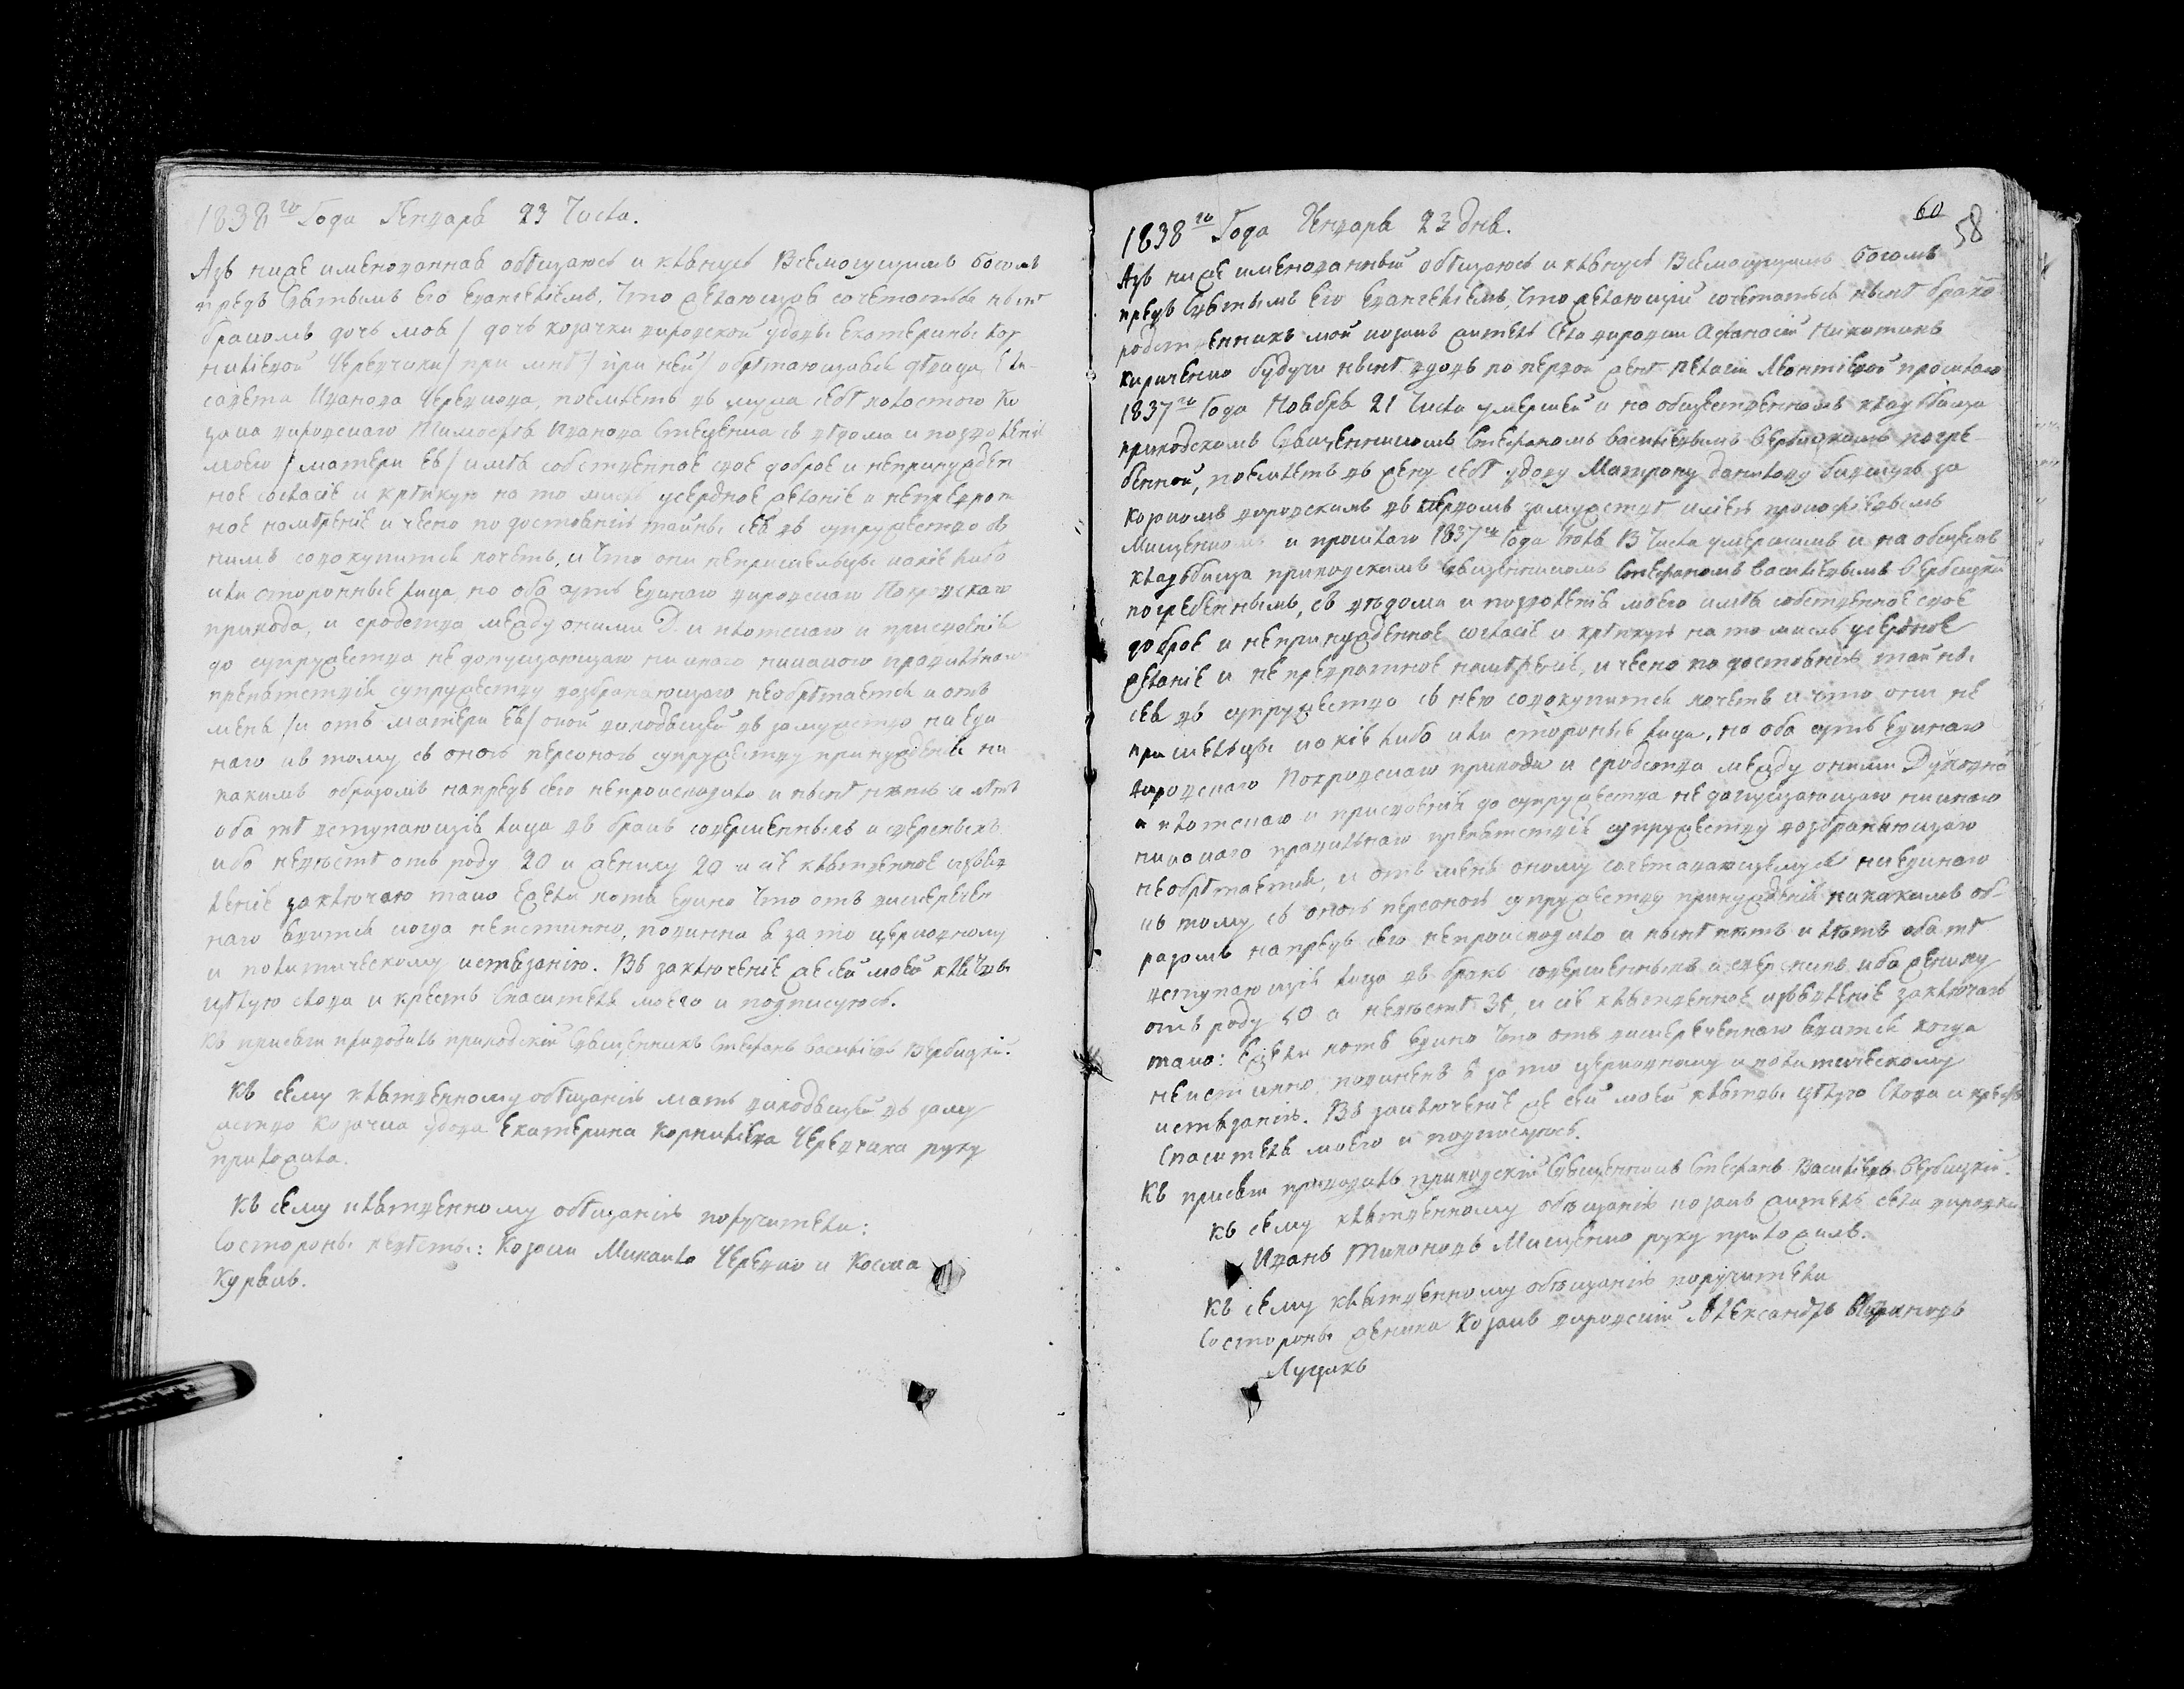 1838го Года Генваря 23 Числа.
Азъ ниже именованная обѣщаюсь и клянусь Всемогущимъ Богомъ
предъ Святымъ Его Евангелiемъ, что желающая сочетаться нынѣ
бракомъ дочь моя / дочь козачки вдовы Екатерины Кор
нилiевой Черевчики / при мнѣ / при ней / обрѣтающаяся дѣвица Ели
савета Иванова поемлетъ въ мужа себѣ холостого Ко
зака Тимофея Иванова съ вѣдома и позволенiя
моего / матери ея / имѣя собственное свое доброе и непринужден
ное согласiе и крѣпкую на то мысль усердное желанiе и непреврат
ное намѣренiе и чесно по достоянiю тайны сея въ супружество съ
нимъ совокупится хочетъ, и что они непришельцы какiе либо
или стороннiе лица, но оба суть единаго Покровскаго
прихода, и сродства между оними Д и плотскаго и присвоенiя
до супружества не допущающаго ни инаго никакого правильнаго
препятствiя супружеству возбраняющаго необрѣтается и отъ
мене / и отъ матери ея / оной въ замужство ни еди
наго къ тому съ оною персоною супружеству принужденiя ни
какимъ образомъ напредъ сего непроисходило и нынѣ нѣтъ и лѣтъ
оба тѣ вступающiя лица въ бракъ совершенныхъ и
ибо невѣстѣ отъ роду 20 и жениху 20 и сiе клятвенное
ленiе заключаю тако ежели хотя едино что отъ вишеречен
наго явится когда неистинно, повинна я за то церковному
и политическому истязанiю. Въ заключенiе же сей моей клятвы
цѣлую слова и крестъ Спасителя моего и подписуюсь.
Къ присягѣ приводилъ приходскiй Священникъ Стефанъ Василiевъ Вербицкiй.
Къ сему клятвенному обѣщанiю мать въ заму
жство Козачка вдова Екатерина Корнилiева Черевчика руку
приложила.
Къ сему клятвенному обѣщанiю поручители:
Состороны невѣсты: Козаки Михайло и Косма
60
58
1838го Года Генваря 23 дня.
Азъ ниже именованный обѣщаюсь и клянусь Всемогущимъ Богомъ
предъ Святымъ Его Евангелiемъ, что желающiй сочетаться нынѣ бракомъ
родственникъ мой козакъ житель села Афанасiй Никитинъ
Кириченко будучи нынѣ вдовъ по первой женѣ Пелагiи Леонтiевой прошлого
1837го Года Ноября 21 Числа умершей и на общественномъ кладбища
приходскомъ Священникомъ Стефаномъ Василiевымъ Вербицкимъ погре
бенной, поемлетъ въ жену себѣ вдову Матрону Данилову бившую за
козакомъ въ первомъ замужствѣ
и прошлаго 1837го Года 13 Числа умершимъ и на общемъ
кладбища приходскимъ Священникомъ Стефаномъ Василiевымъ Вербицкимъ
погребеннымъ, съ вѣдома и позволенiя моего имѣя собственное свое
доброе и непринужденное согласiе и крѣпкую на то мысль усердное
желанiе и непревратное намѣренiе, и чесно по достоянiю тайны
сея въ супружество съ нею совокупится хочетъ и что они не
пришельцы какiе либо или сторонные лица, но оба суть единаго
Покровскаго прихода и сродства между оними Духовно
и плотскаго и присвоенiя до супружества не допущающаго ни инаго
никакого правильнаго препятствiя супружеству возбраняющаго
необрѣтается, и отъ мене оному ни единаго
къ тому съ оною персоною супружеству принужденiя никакимъ об-
разомъ напредъ сего непроисходило и нынѣ нѣтъ и лѣтъ оба тѣ
вступающiя лица въ бракъ совершенныхъ и ибо жениху
отъ роду а невѣстѣ и сiе клятвенное заключаю
тако: Ежели хотя едино что отъ вишереченнаго явится когда
неистинно повиненъ я за то церковному и политическому
истязанiю. Въ заключенiе же сей моей клятвы цѣлую слова и крестъ
Спасителя моего и подписуюсь.
Къ присягѣ приводилъ приходскiй Священникъ Стефанъ Василiевъ Вербицкiй.
Къ сему клятвенному обѣщанiю козакъ житель села
Иванъ Тихоновъ Мищенко руку приложилъ.
Къ сему клятвенному обѣщанiю поручители
Состороны жениха Козакъ Александръ